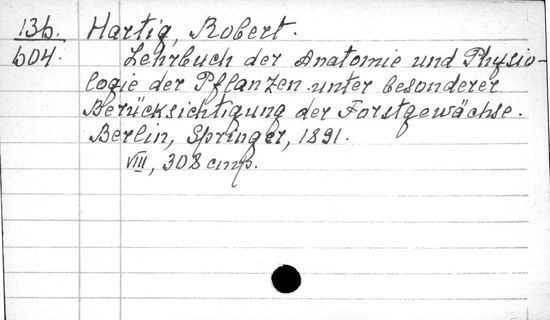 13б. Hartig, Robert.
604. Lehrbuch der Anatomie und Physio-
logie der Pflanzen unter besonderer
Berücksichtigung der Forstgewächse.
Berlin, Springer, 1891.
VIII, 308 стр.